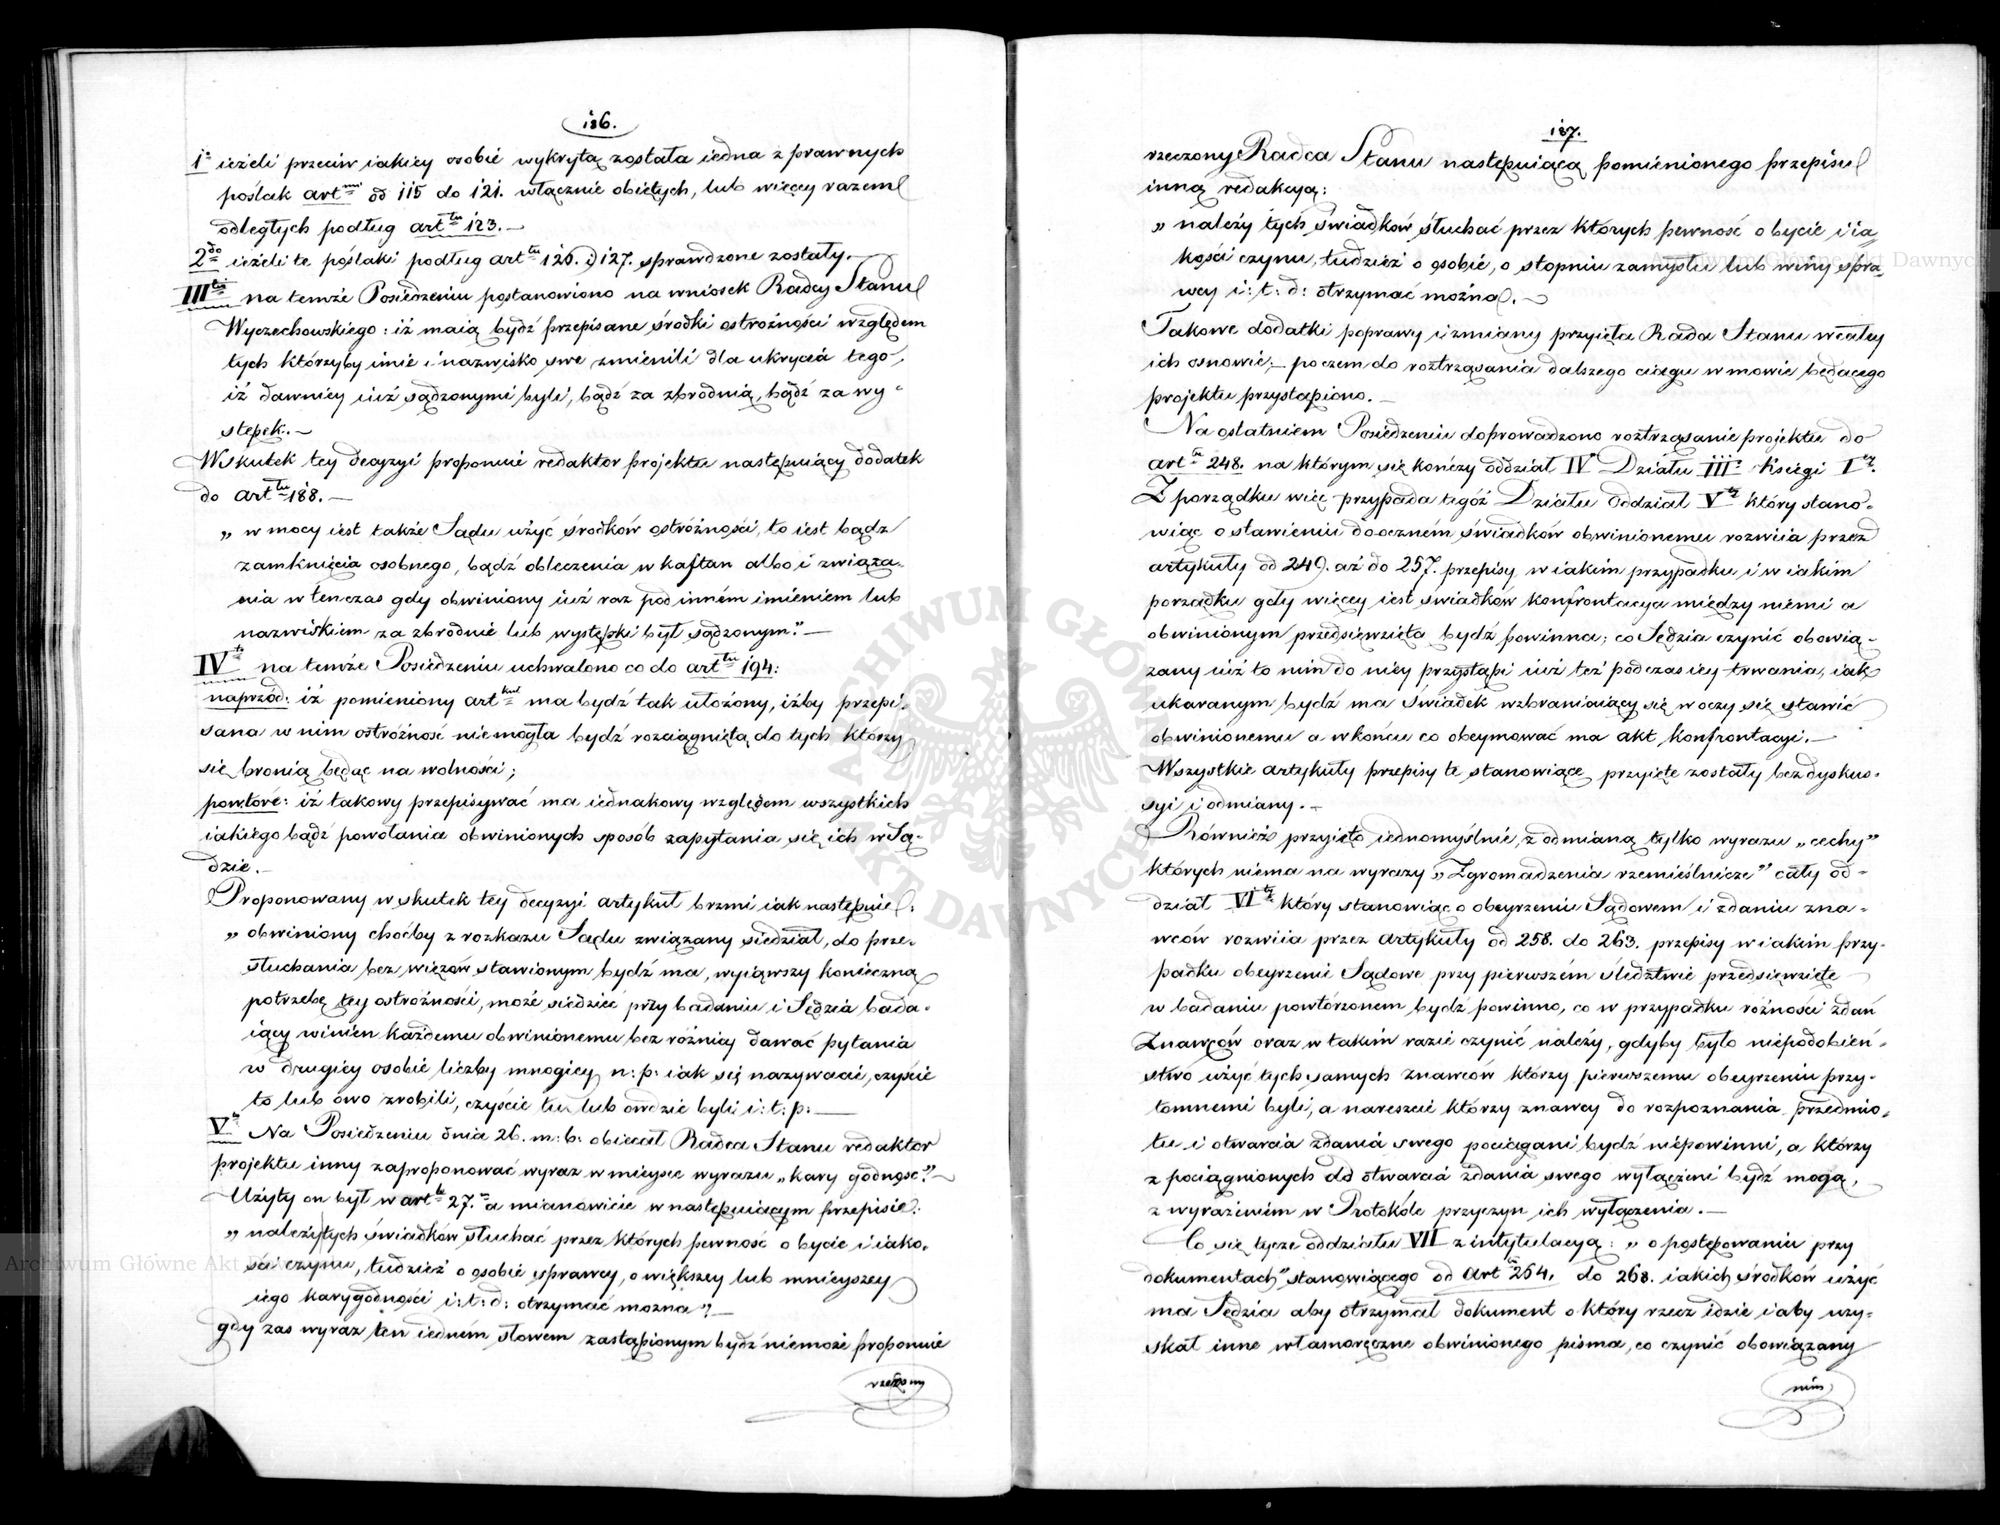 186.
1° ieżeli przeciw iakiey osobie wykrytą została iedna z prawnych
poślak art^mi od 115 do 121. włącznie obiętych, lub więcey razem
odległych podług art^tu 123. —
2^do ieżeli te poślaki podług art^tu 126. i 127. sprawdzone zostały. —
III^tio na temże Posiedzeniu postanowiono na wniosek Radcy Stanu
Wyczechowskiego: iż maią bydź przepisane środki ostrożności względem
tych którzyby imie i nazwisko swe zmienili dla ukrycia tego,
iż dawniey iuż sądzonymi byli, bądź za zbrodnią, bądź za wy-
stępek. —
Wskutek tey decyzyi proponuie redaktor projektu następuiący dodatek
do art^tu 188. —
„ w mocy iest także Sądu użyć środków ostrożności, to iest bądź
zamknięcia osobnego, bądź obleczenia w kaftan albo i związa-
nia wtenczas gdy obwiniony iuż raz pod inném imieniem lub
nazwiskiem za zbrodnie lub występki był sądzonym." —
IV^to na temże Posiedzeniu uchwalono co do art^tu 194:
naprzód: iż pomieniony art^kuł ma bydź tak ułożony, iżby przepi-
sana w nim ostróżność niemogła bydź rozciągniętą do tych którzy
się bronią będąc na wolności;
powtóre: iż takowy przepisywać ma iednakowy względem wszystkich
iakiego bądź powołania obwinionych sposób zapytania się ich w Są-
dzie. —
Proponowany wskutek tey decyzyi artykuł brzmi iak następuie:
„ obwiniony choćby z rozkazu Sądu związany siedział, do prze-
słuchania bez więzów stawionym bydź ma, wyiąwszy konieczną
potrzebę tey ostrożności, może siedzieć przy badaniu i Sędzia bada-
iący winien każdemu obwinionemu bez różnicy dawać pytania
w drugiey osobie liczby mnogiey n: p: iak się nazywacie, czyście
to lub owo zrobili, czyście tu lub owdzie byli i: t: p: —
V^to Na Posiedzeniu dnia 26. m: b: obiecał Radca Stanu redaktor
projektu inny zaproponować wyraz w mieysce wyrazu „kary godność." —
Użyty on był w art^le 27.^m a mianowicie w następuiącym przepisie:
„ należy tych świadków słuchać przez których pewność o bycie i iako-
ści czynu, tudzież o osobie sprawcy, o większey lub mnieyszey
iego karygodności i: t: d: otrzymać można". —
gdy zas wyraz ten iedném słowem zastąpionym bydź niemoże proponuie
rzeczony
187.
rzeczony Radca Stanu następuiącą pomienionego przepisu
inną redakcyą:
„ należy tych świadków słuchać przez których pewność o bycie i ia-
kości czynu, tudzież o osobie, o stopniu zamysłu lub winy spra-
wcy i: t: d: otrzymać można. —
Takowe dodatki poprawy i zmiany przyięła Rada Stanu w całey
ich osnowie; — poczem do roztrząsania dalszego ciągu w mowie będącego
projektu przystąpiono. —
Na ostatniem Posiedzeniu doprowadzono roztrząsanie projektu do
art^lu 248. na którym się kończy oddział IV Działu III° Księgi I^ey.
Z porządku więc przypada tegóż Działu Oddział V^ty który stano-
wiąc o stawieniu doocznem świadków obwinionemu rozwiia przez
artykuły od 249. aż do 257. przepisy w iakim przypadku i w iakim
porządku gdy więcey iest świadków konfrontacya między niemi a
obwinionym przedsięwzięta bydź powinna; co Sędzia czynić obowią-
zany iuż to nim do niey przystąpi iuż też podczas iey trwania, iak
ukaranym bydź ma świadek wzbraniaiący się w oczy się stawić
obwinionemu a w końcu co obeymować ma akt konfrontacyi. —
Wszystkie artykuły przepisy te stanowiące przyięte zostały bez dyskus-
syi i odmiany. —
Również przyięto iednomyślnie, z odmianą tylko wyrazu „cechy"
których niema na wyrazy „Zgromadzenia rzemieślnicze" cały od-
dział VI^ty który stanowiąc o obeyrzeniu Sądowem i zdaniu zna-
wców rozwiia przez artykuły od 258. do 263. przepisy w iakim przy-
padku obeyrzenie Sądowe przy pierwszém śledztwie przedsięwzięte
w badaniu powtórzonem bydź powinno, co w przypadku różności zdań
Znawców oraz w takim razie czynić należy, gdyby było niepodobień-
stwo użyć tych samych znawców którzy pierwszemu obeyrzeniu przy-
tomnemi byli, a nareszcie którzy znawcy do rozpoznania przedmio-
tu i otwarcia zdania swego pociągani bydź niepowinni, a którzy
z pociągnionych do otwarcia zdania swego wyłączeni bydź mogą,
z wyrażeniem w Protokóle przyczyn ich wyłączenia. —
Co się tycze oddziału VII z intytulacyą: „o postępowaniu przy
dokumentach" stanowiącego od art^lu 264. do 268. iakich środków użyć
ma Sędzia aby otrzymał dokument o który rzecz idzie i aby uzy-
skał inne własnoręczne obwinionego pisma, co czynić obowiązany
nim
Archiwum Główne Akt Dawnych
ARCHIWUM GŁÓWNE AKT DAWNYCH
Archiwum Główne Akt Dawnych